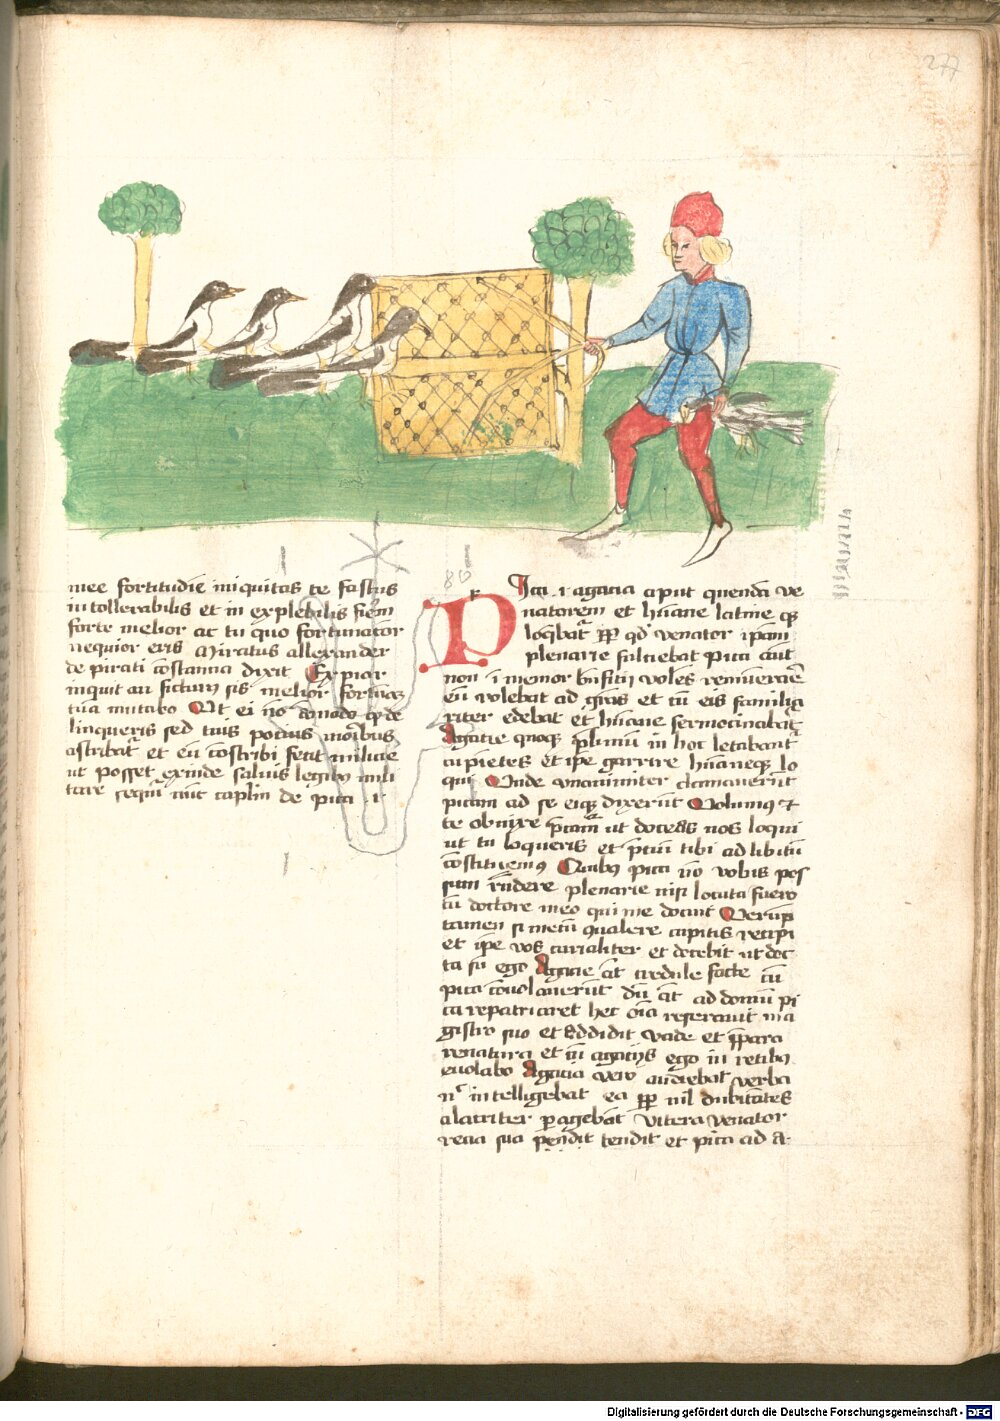 277
mee fortitudīe iniquitas te fastus
intollerabilis et in explebilis
forte melior ac tu quo fortunatior
nequior eris Miratus allexander
de pirati constantia dixit Expiar
inquit an fictum sis melior
tua mutabo Ut ei nō amodo
linqueris sed tuis potius moribus
astribat et eū constribi fecit milicie
ut posset exinde saluis legibus mili
tare sequitur nūc caplm de pica
86
PIca i agacia aput quendā ve
natorem et hūane latine
loqbat qd venator ipam
plenarie fulciebat Pica aut
non
eū volebat ad et tū eis familia
riter edebat et hūane sermocinabat
Agacie quoque in hoc letabant
cupietes et ipe garrire hūaneque lo
qui Unde unanimiter clamauerūt
picam ad se eique dixerūt Volumus
te obnixe ut doceas nos loqui
ut tu loqueris et tibi ad libitū
constituemus Quibus pica nō vobis pos
sum rndere plenarie nisi locuta fuero
cū doctore meo qui me docuit Verūp
tamen si mecū qualere cupitis recipi
et ipe vos curialiter et docebit ut doc
ta sū ego Agacie credule facte cū
pica conuolauerūt dū at ad domū pi
ca repatriaret hec oīa referauit ma
gistro suo et addidit Vade et para
venatura et cū agaciis ego in retibus
euolabo Agacia vero audiebat verba
intelligebat ea nil dubitātes
alacriter pagebāt Vltera venator
recia sua tendit et pica ad A
Digitalisierung gefördert durch die Deutsche Forschungsgemeinschaft - DFG